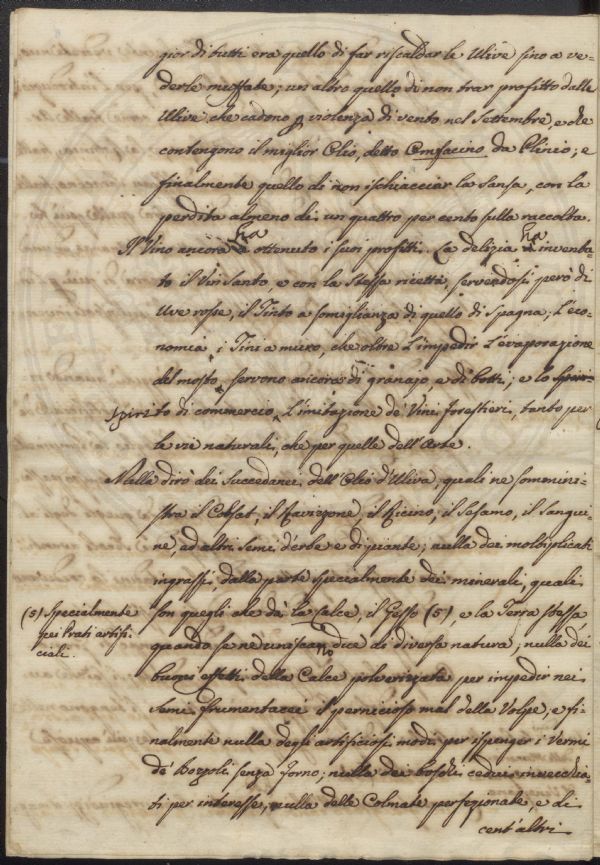 gior di tutti era quello di far riscaldar le Ulive sino a ve-
derle muffate; un altro quello di non trar profitto dalle
Ulive che cadono p violenza di vento nel Settembre, e che
contengono il miglior Olio, detto Omfacino da Plinio; e
finalmente quello di non ischiacciar la Sansa, con la
perdita almeno di un quattro per cento sulla raccolta.
Il Vino ancora ha ottenuto i suoi profitti. La delizia ha inventa-
to il Vin Santo, e con la stessa ricetta, servendosi però di
Uve rosse, il Tinto a somiglianza di quello di Spagna; l'eco-
nomia, i Tini a muro, che oltre l'impedir l'evaporazione
del mosto, servono ancora di granajo, e di botti; e lo Spiri-
spirito di commercio, l'imitazione de' Vini forestieri, tanto per
le vie naturali, che per quelle dell'Arte.
Nulla dirò dei Succedanei dell'Olio d'Uliva, quali ne sommini-
stra il Colsat, il Ravizzone, il Ricino, il Sesamo, il Sangui-
ne, ed altri Semi d'erbe e di piante; nulla dei moltiplicati
ingrassi, dalla parte specialmente dei minerali, quali
son quegli che dà la Calce, il Gesso (5), e la Terra stessa
(5) Specialmente
pei Prati artifi-
ciali.
quando se ne uniscano due di diversa natura; nulla dei
buoni effetti della Calce polverizzata per impedir nei
Semi frumentacei il pernicioso mal della Volpe; e fi-
nalmente nulla degli artificiosi modi per ispenger i Vermi
de' Bozzoli senza forno; nulla dei boschi cedui invecchia-
ti per interesse, nulla delle Colmate perfezionate, e di
cent'altri